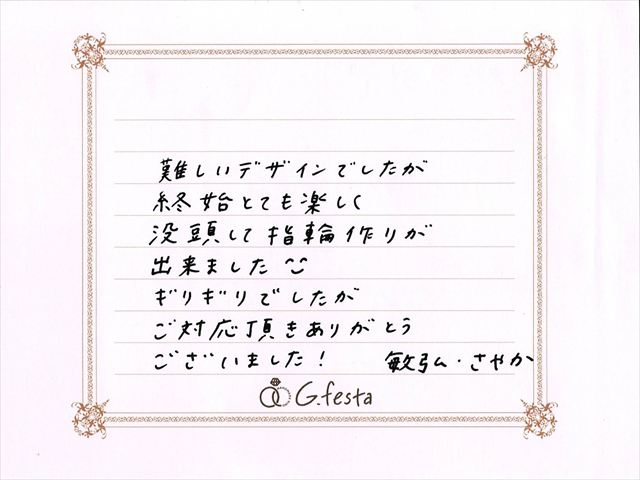 難しいデザインでしたが
終始とても楽しく
没頭して指輪作りが
出来ました
ギリギリでしたが
ご対応頂きありがとう
ございました！ 敏弘・さやか
G.festa